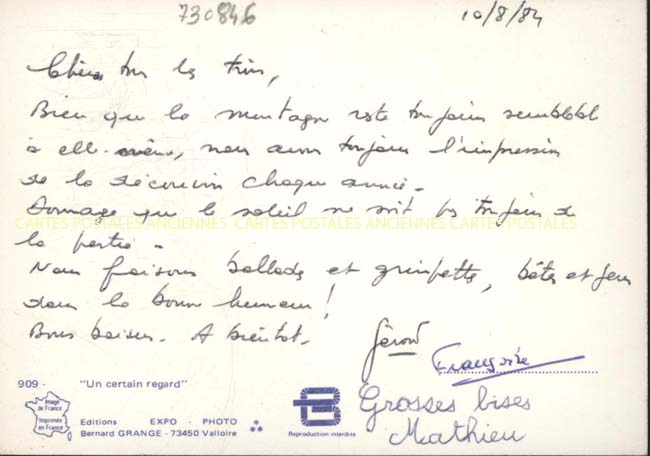 730846
10/8/84
Chers tous les trois,
Bien que la montagne reste toujours semblable
à elle-même, nous avons toujours l'impression
de la découvrir chaque année.
Dommage que le soleil ne soit pas toujours de
la partie.
Nous faisons ballades et grimpette, bêtes et gens
dans la bonne humeur!
Bons baisers. A bientôt.
Gérard
Françoise
Grosses bises
Mathieu
CARTES POSTALES ANCIENNES CARTES POSTALES ANCIENNES CARTES POSTALES
909 - "Un certain regard"
Image de France
Imprimée en France
Editions EXPO - PHOTO
Bernard GRANGE - 73450 Valloire
Reproduction interdite